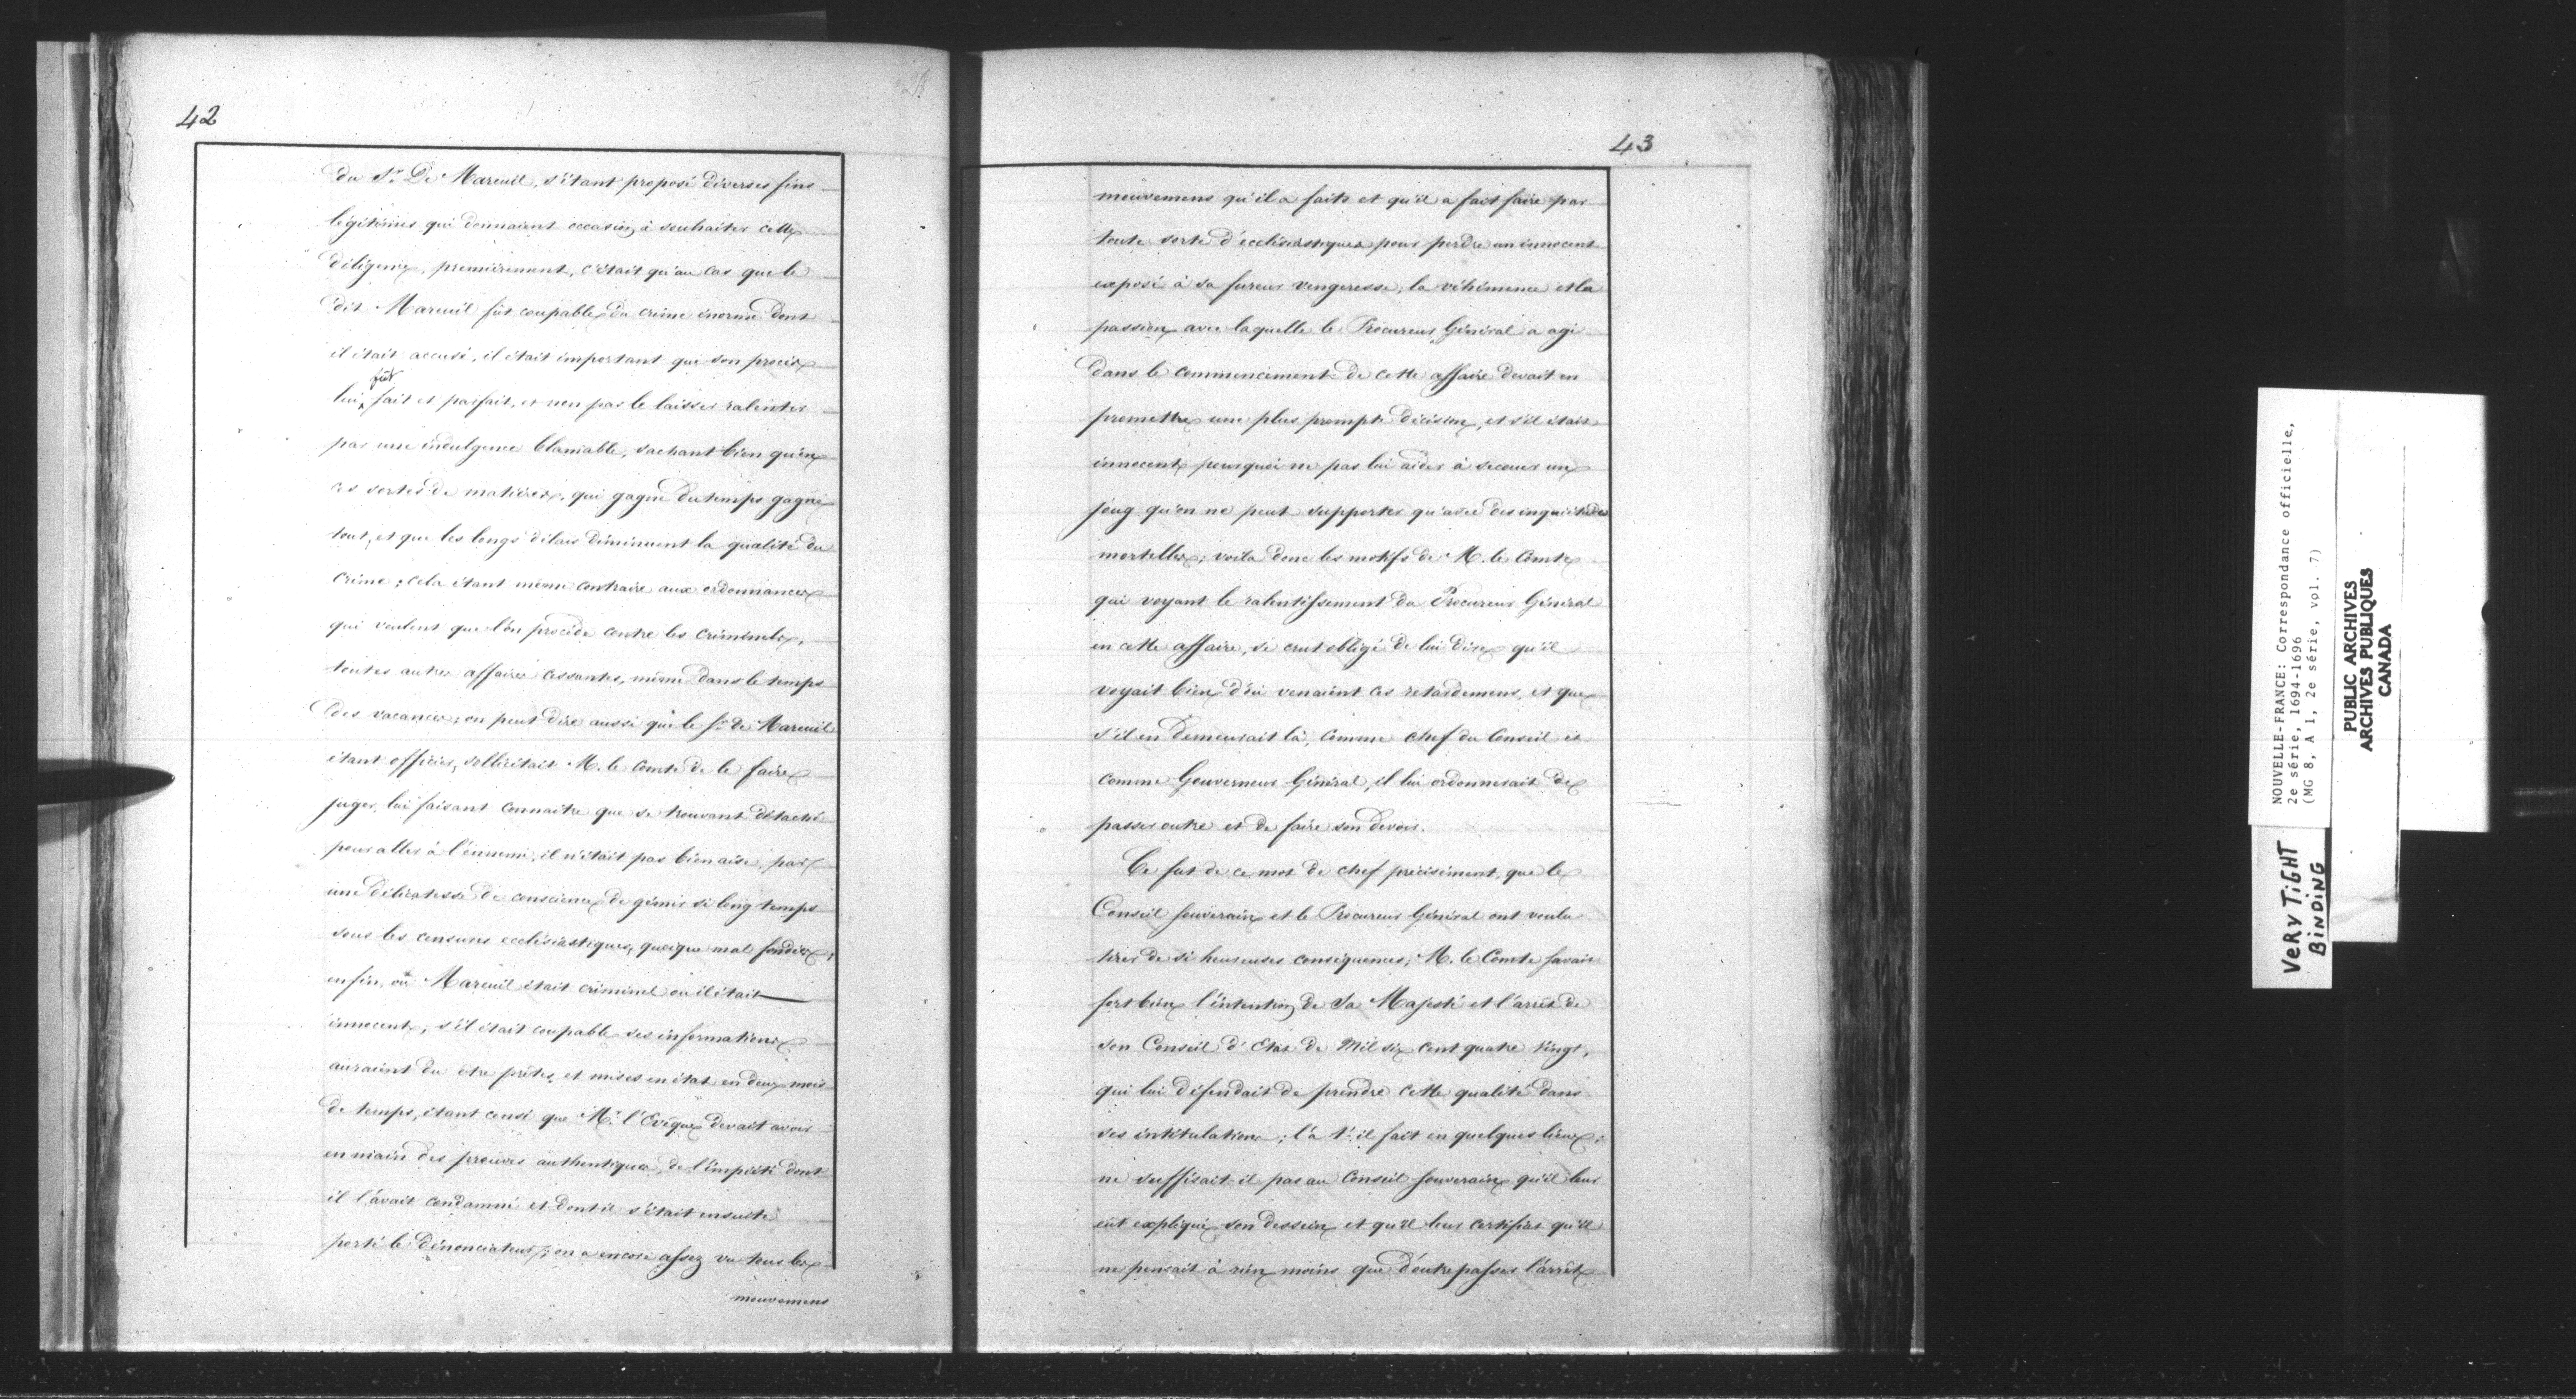 42
du Sr. De Mareuil, s'étant proposé diverses fins
légitimes qui donnaient occasion à souhaiter cette
diligence, premièrement, c'était qu'au cas que le
dit Mareuil fût coupable du crime énorme dont
il était accusé, il était important que son procès
lui fût fait et parfait, et non pas le laisser ralentir
par une indulgence blamable, sachant bien qu'en
ces sortes de matières, qui gagne du temps gagne
tout, et que les longs délais diminuent la qualité du
crime; cela étant même contraire aux ordonnances
qui veulent que l'on procède contre les criminels,
toutes autres affaires cessantes, même dans le temps
des vacances; on peut dire aussi que le Sr. de Mareuil
étant officier, sollicitait M. le Comte de le faire
juger, lui faisant connaitre que se trouvant détaché
pour aller à l'ennemi, il n'était pas bien aise, par
une délicatesse de conscience de gémir si long temps
sous les censures ecclésiastiques, quoique mal fondées;
enfin, ou Mareuil était criminel ou il était
innocent; s'il était coupable ses informations
auraient du être prêtes et mises en état en deux mois
de temps, étant censé que Mr. l'Evêque devait avoir
en main des preuves authentiques, de l'impiété dont
il l'avait condamné et dont il s'était ensuite
porté le dénonciateur; on a encore assez vu tous les
mouvemens
43
mouvemens qu'il a faits et qu'il a fait faire par
toute sorte d'ecclésiastiques pour perdre un innocent
exposé à sa fureur vengeresse; la véhémence et la
passion avec laquelle le Procureur Général a agi
dans le commencement de cette affaire devait en
promettre une plus prompte décision, et s'il était
innocent pourquoi ne pas lui aider à secouer un
joug qu'on ne peut supporter qu'avec des inquiétudes
mortelles; voila donc les motifs de M. le Comte
qui voyant le ralentissement du Procureur Général
en cette affaire, se crut obligé de lui dire qu'il
voyait bien d'où venaient ces retardemens, et que
s'il en demeurait là, comme chef du Conseil et
comme Gouverneur Général, il lui ordonnerait de
passer outre et de faire son devoir.
Ce fut de ce mot de chef précisément, que le
Conseil Souverain et le Procureur Général ont voulu
tirer de si heureuses conséquences; M. le Comte savait
fort bien l'intention de Sa Majesté et l'arrêt de
son Conseil d'Etat de Mil six cent quatre vingt,
qui lui défendait de prendre cette qualité dans
ses intitulations; l'a t'-il fait en quelques lieux;
ne suffisait-il pas au Conseil Souverain qu'il leur
eût expliqué son dessein et qu'il leur certifiat qu'il
ne pensait à rien moins que d'outrepasser l'arrêt
NOUVELLE-FRANCE: Correspondance officielle,
2e série, 1694-1696
(MG 8, A 1, 2e série, vol. 7)
PUBLIC ARCHIVES
ARCHIVES PUBLIQUES
CANADA
VERY TIGHT
BINDING